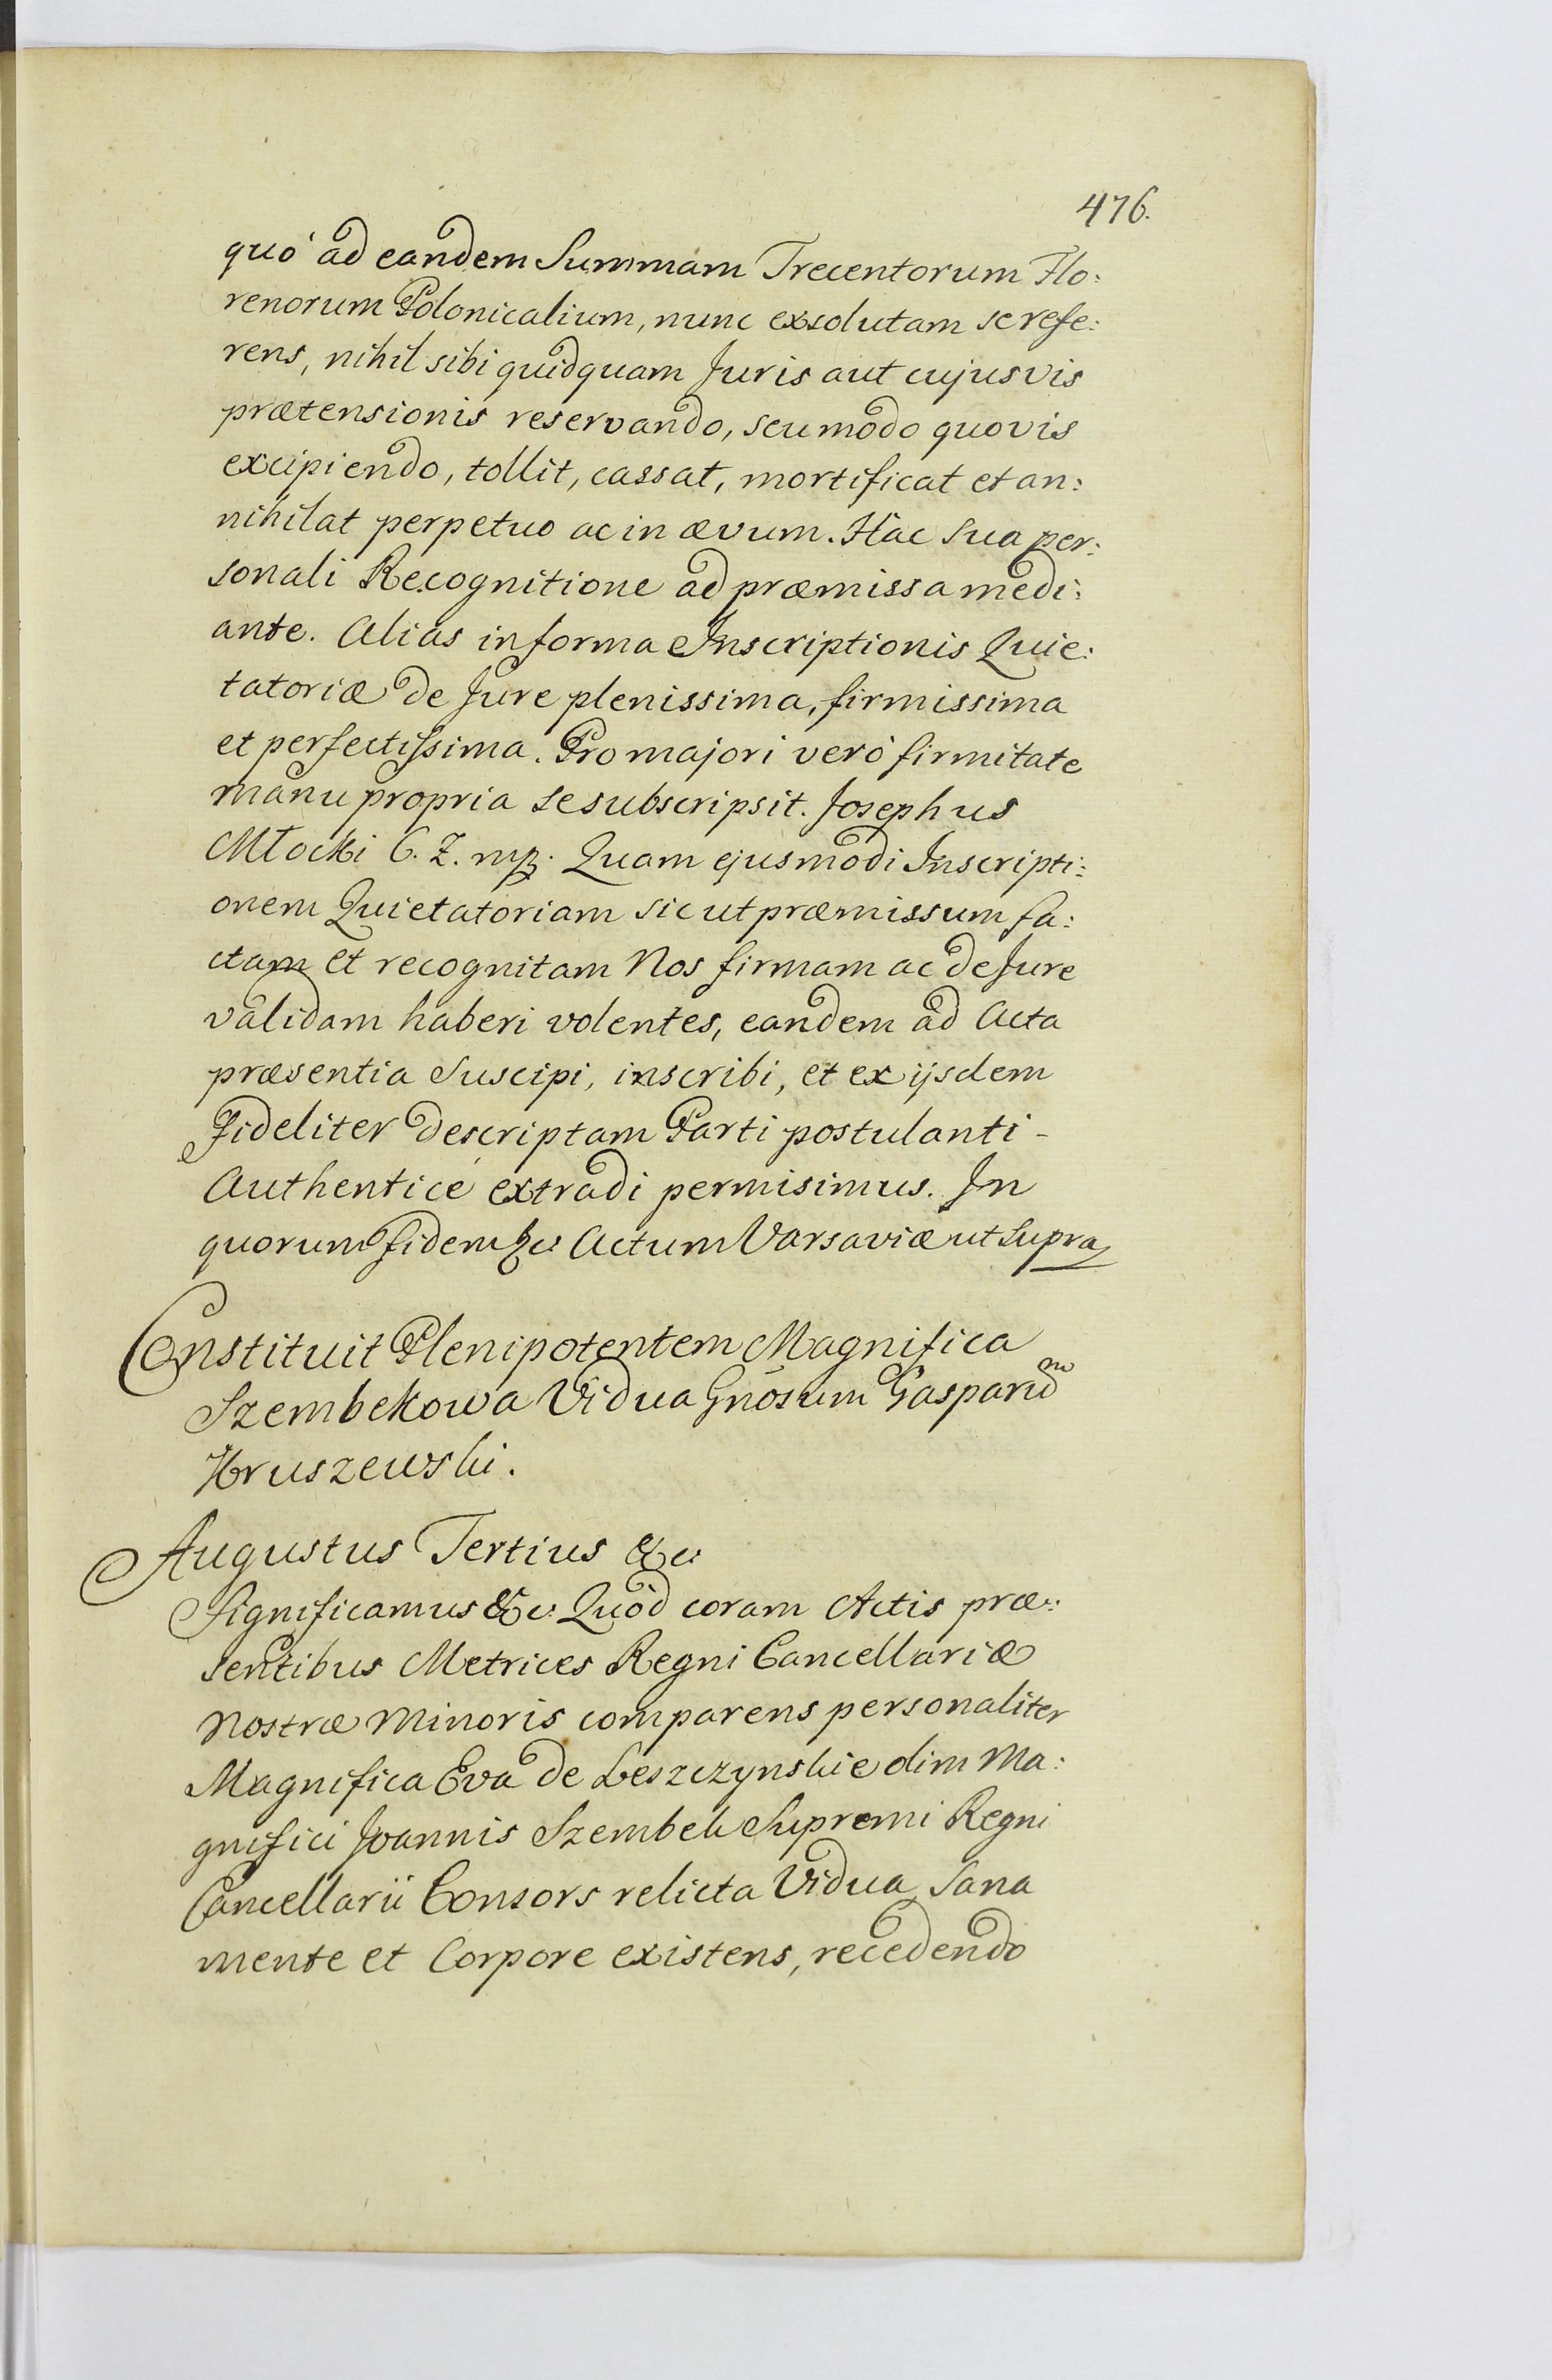 476.
quò ad eandem Summam Trecentorum Flo:
renorum Polonicalium, nunc exsolutam se refe:
rens, nihil sibi quidquam Juris aut cujusvis
prætensionis reservando, seu modo quovis
excipiendo, tollit, cassat, mortificat et an:
nihilat perpetuo ac in ævum. Hac Sua per:
sonali Recognitione ad præmissa medi:
ante. Alias in forma Inscriptionis Quie:
tatoriæ de Jure plenissima, firmissima
et perfectissima. Pro majori verò firmitate
manu propria se subscripsit. Josephus
Młocki C. Z. mp. Quam ejusmodi Inscripti:
onem Quietatoriam sic ut præmissum fa:
ctam et recognitam Nos firmam ac de Jure
validam haberi volentes, eandem ad Acta
præsentia Suscipi, inscribi, et ex ijsdem
Fideliter descriptam Parti postulanti -
Authenticè extradi permisimus. In
quorum fidem &c: Actum Varsaviæ ut Supra
Constituit Plenipotentem Magnifica
Szembekowa Vidua Gnosum Gasparum
Hruszewski.
Augustus Tertius &c:
Significamus &c: Quòd coram Actis præ:
sentibus Metrices Regni Cancellariæ
Nostræ Minoris comparens personaliter
Magnifica Eva de Leszczynskie olim Ma:
gnifici Joannis Szembek Supremi Regni
Cancellarii Consors relicta Vidua, Sana
mente et Corpore existens, recedendo